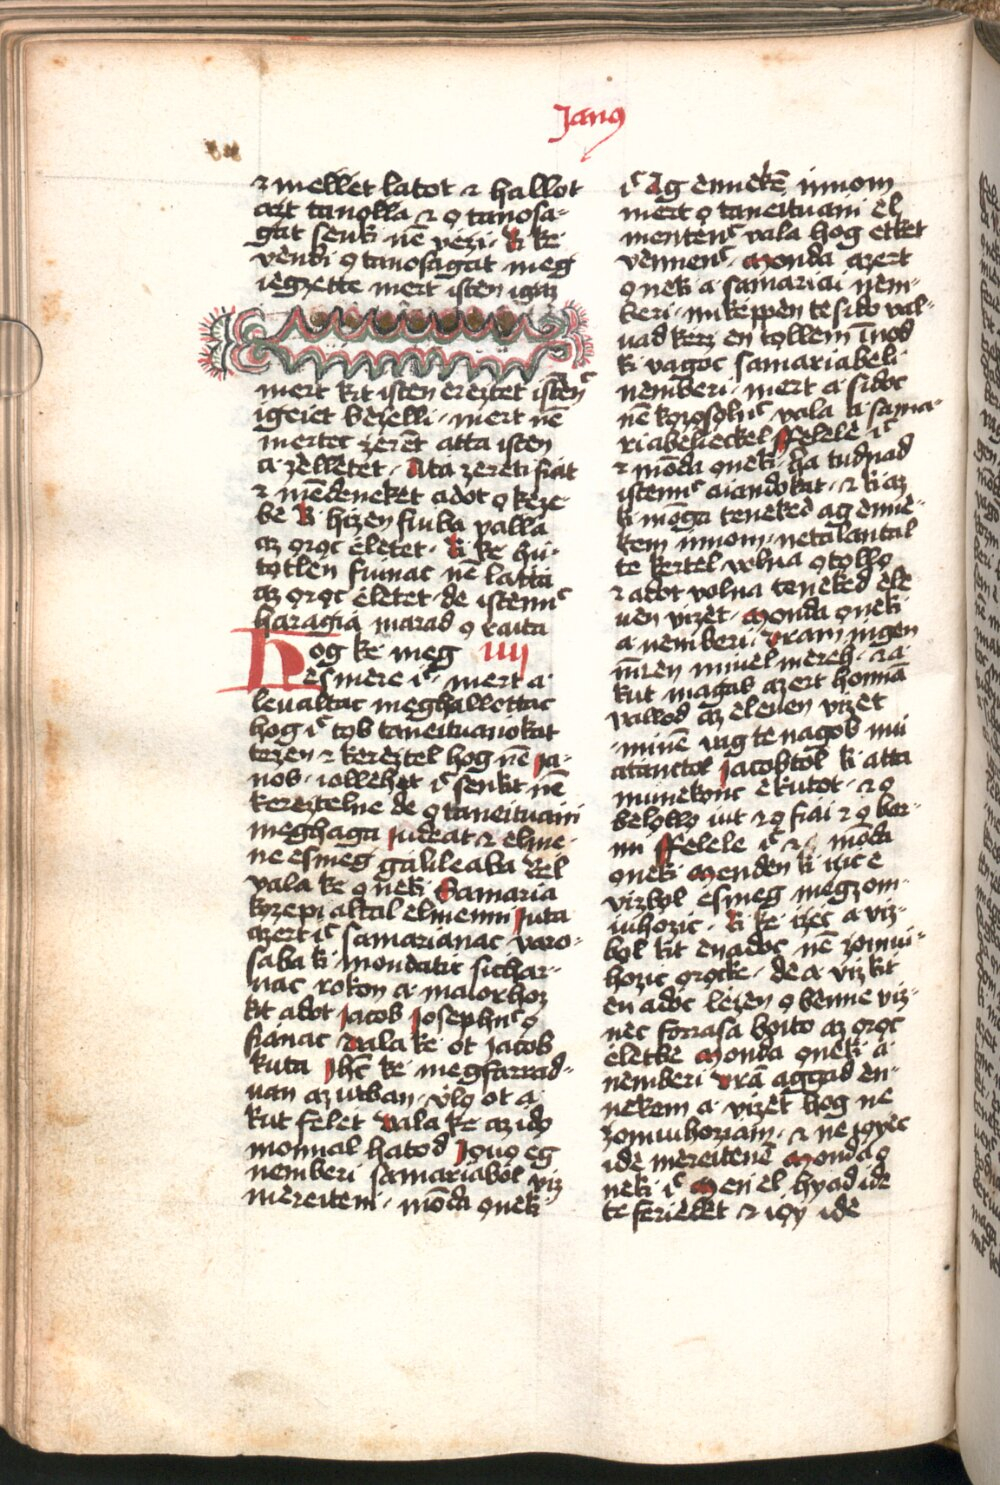 Janꝯ
⁊ mellet latot ⁊ hallot
azt tanolla ⁊ ọ tanosa-
gat senki nē vèzi · Ki ke
vèndi ọ tanosagat meg
ièġzette mert isten igaz
mert kit isten ereztet istēnc̄
igeiet bezelli · mert nē
mertec zerēt atta isten
a zèllètet · Aṫa zereti fiat
⁊ mēdeneket adot ọ keze-
be Ki hizen fiuba valla
az ọrọc èlètet · Ki ke hi-
totlen fiunac nē lattia
az ọrọc èlètet · de istennc̄
haragia marad ọ raita
Hog ke meg IIII
èsmere ic̄ · mert a
leualtac meghallottac
hog ic̄ tob taneituaniokat
tèzen ⁊ kereztel hog nē Ja-
nos · iollehèt ic̄ senkit nē
kereztelne de ọ taneituani
meghaga Judeat ⁊ elme-
ne esmeg galileaba kèl
vala ke ọ neki · Samaria
kọzepi altal elmenni Juta
azert ic̄ samarianac varo-
saba ki mondatic sichar-
nac rokon a maiorhoz
kit adot Jacob Josephnc̄ ọ
fianac Vala ke ot Jacob
kuta Jhc̄ ke megfarrad-
uan az utban · vlọ ot a
kut felet Vala ke az idọ
monnal hatod Jọuọ eg
nemberi samariabol viz
mèreiteni · mōda ọneki
ic̄ Aġ ènnekē innom
mert ọ taneituani èl
mentenc̄ vala hog etket
vènnenc̄ · Monda azert
ọneki a samariai nem-
beri · mikeppen te sido val-
uad kerz en tọllem īnod
ki vagoc samariabeli
nemberi · mert a sidoc
nē kọzọsolnc̄ vala a sama-
riabelieckel Felele ic̄
⁊ mōda ọneki · ha tudnad
istennc̄ aiandokat · ⁊ ki az
ki mōġa tenekèd aġ ènne-
kem innom · netalantal
te kertel volna ọ tọllọ
⁊ adot volna tenekèd ele
uen vizèt · Monda ọneki
a nemberi · Vram nigen
mivel mereh · ⁊ a
kut magas azert honnā
vallod az eleuen vizèt
minē vaġ te nagob mi
atanctol Jacobtol ki atta
minekọnc è kutot · ⁊ ọ
belọlọ iut ⁊ ọ fiai ⁊ ọ bar-
mi Felele ic̄ ⁊ mōda
ọneki Menden ki izic è
vizbọl èsmeg megzom-
iuhozic · Ki ke izec a viz-
bọl kit en adoc nē zomiu-
hozic ọrọcke · de a viz kit
en adoc lezen ọ benne viz-
nèc forrasa bọito az ọrọc
èlètbe Monda ọneki a
nemberi Vrā aggad en-
nekem a vizet hog ne
zomiuhoziam · ⁊ ne iọyèc
ide mereitenē Monda ọ
neki ic̄ Menèl hyad ide
te feriedèt ⁊ iọy idè